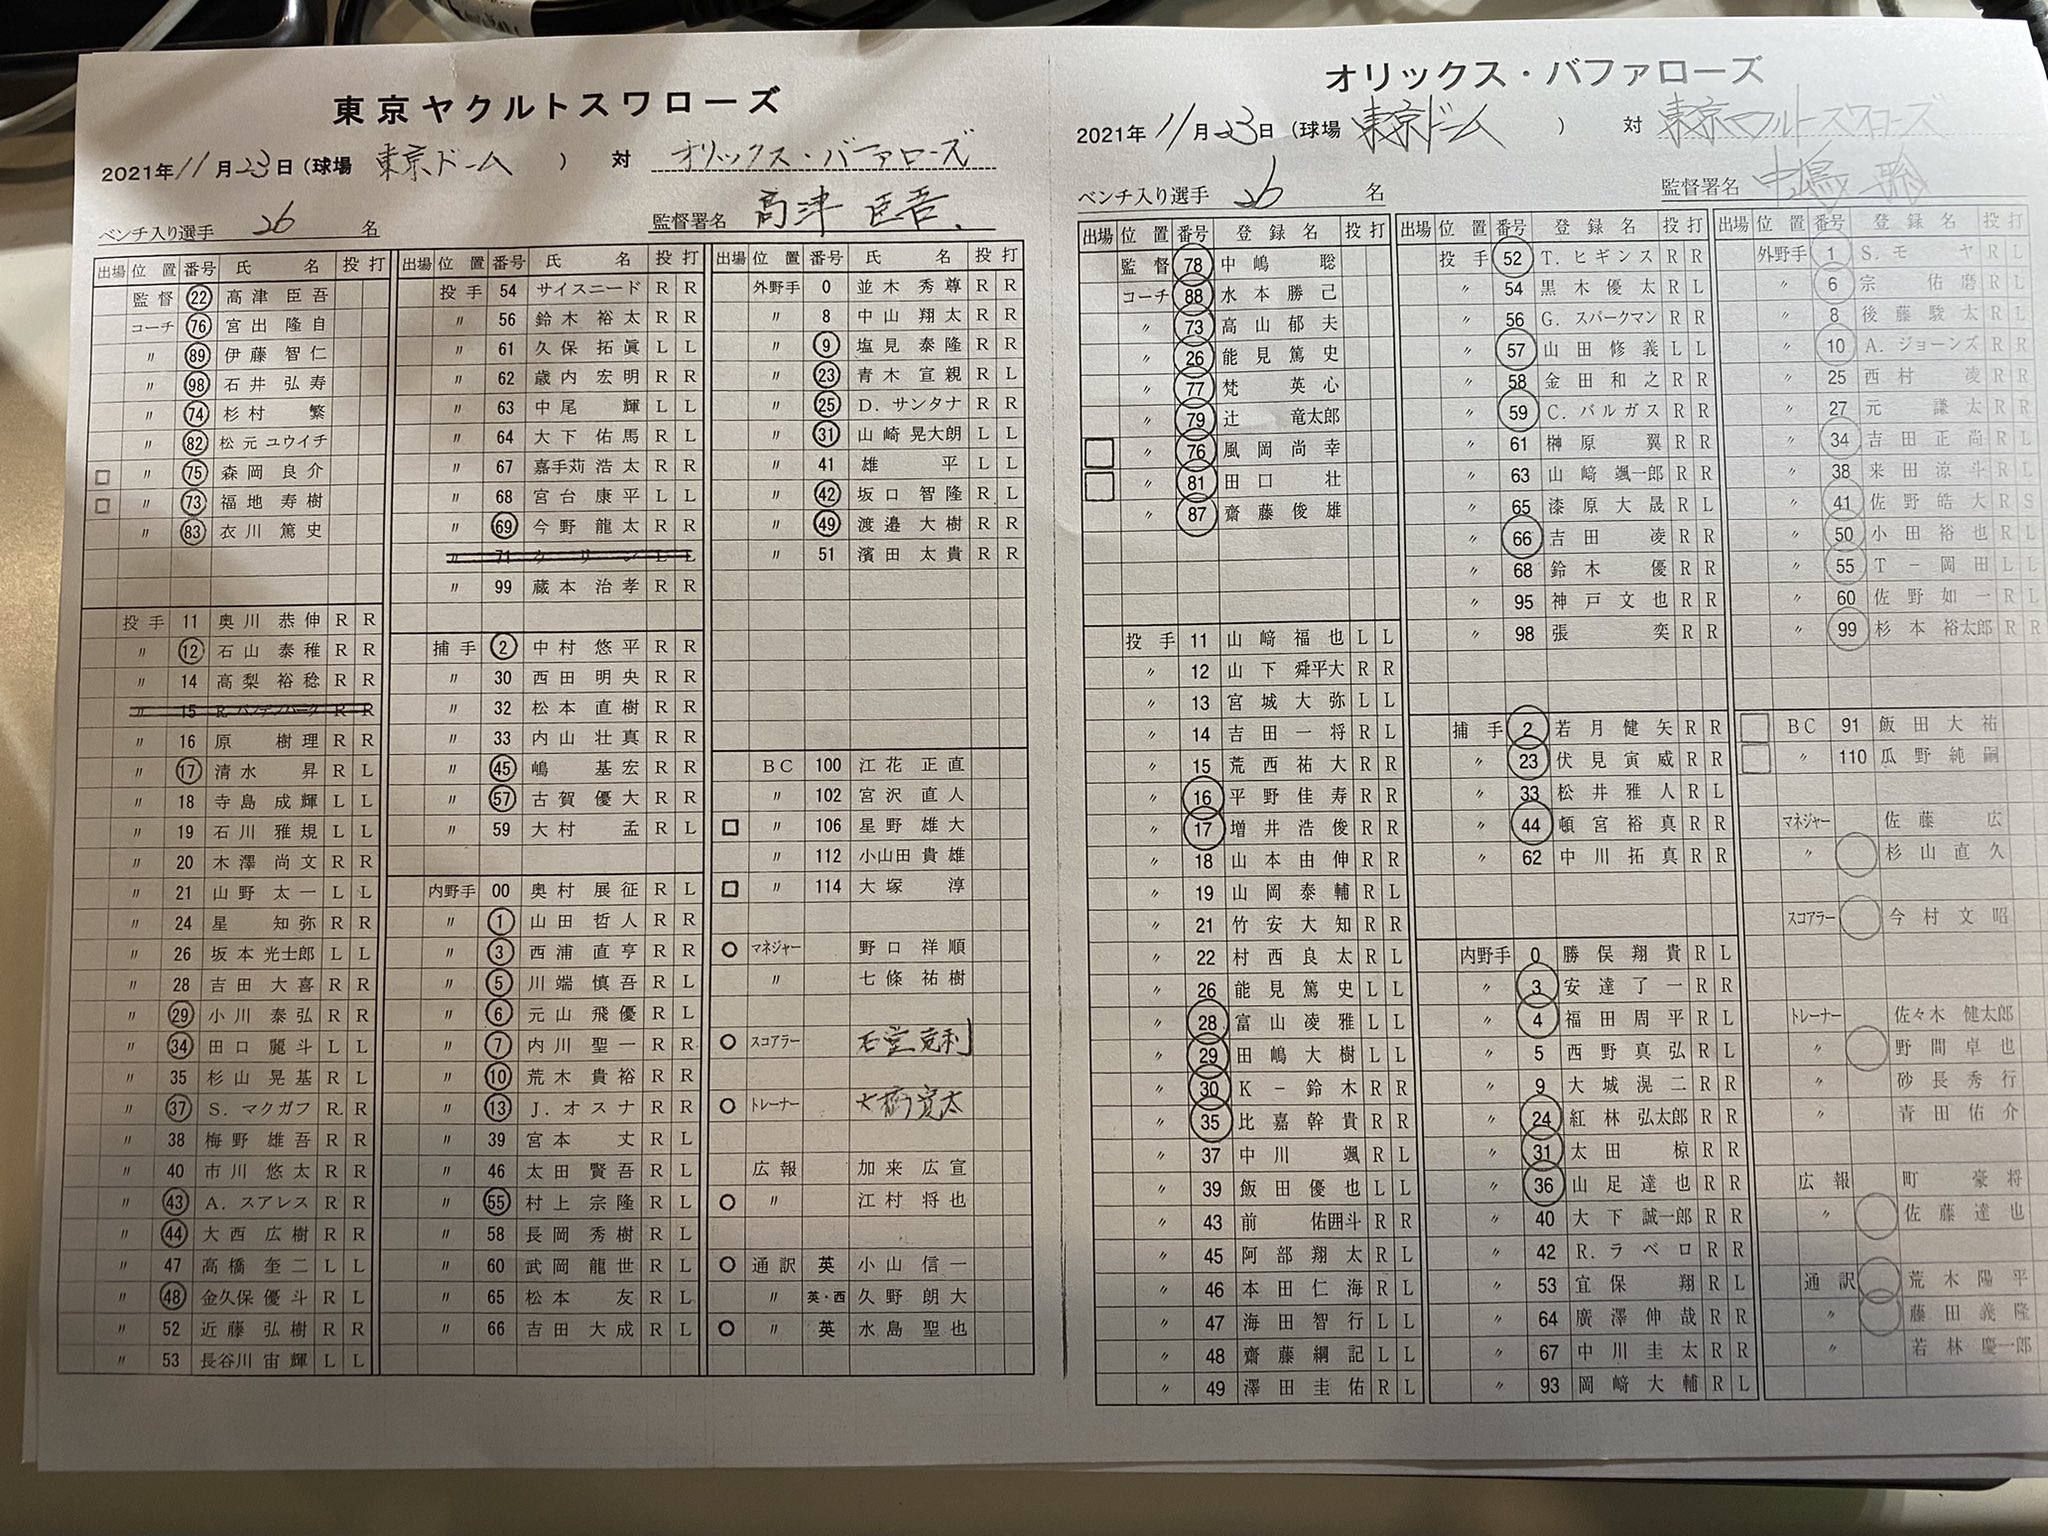 東京ヤクルトスワローズ
2021年11月23日(球場 東京ドーム ) 対 オリックス・バファローズ
ベンチ入り選手 26 名 監督署名 高津 臣吾
出場 位置 番号 氏名 投 打
監督 22 高津臣吾
コーチ 76 宮出隆自
〃 89 伊藤智仁
〃 98 石井弘寿
〃 74 杉村繁
〃 82 松元ユウイチ
□ 〃 75 森岡良介
□ 〃 73 福地寿樹
〃 83 衣川篤史
投手 11 奥川恭伸 R R
〃 12 石山泰稚 R R
〃 14 高梨裕稔 R R
〃 15 R.バンデンハーク R R
〃 16 原樹理 R R
〃 17 清水昇 R L
〃 18 寺島成輝 L L
〃 19 石川雅規 L L
〃 20 木澤尚文 R R
〃 21 山野太一 L L
〃 24 星知弥 R R
〃 26 坂本光士郎 L L
〃 28 吉田大喜 R R
〃 29 小川泰弘 R R
〃 34 田口麗斗 L L
〃 35 杉山晃基 R L
〃 37 S.マクガフ R R
〃 38 梅野雄吾 R R
〃 40 市川悠太 R R
〃 43 A.スアレス R R
〃 44 大西広樹 R R
〃 47 高橋奎二 L L
〃 48 金久保優斗 R L
〃 52 近藤弘樹 R R
〃 53 長谷川宙輝 L L
出場 位置 番号 氏名 投 打
投手 54 サイスニード R R
〃 56 鈴木裕太 R R
〃 61 久保拓眞 L L
〃 62 歳内宏明 R R
〃 63 中尾輝 L L
〃 64 大下佑馬 R R
〃 67 嘉手苅浩太 R R
〃 68 宮台康平 L L
〃 69 今野龍太 R R
〃 71 クリーン L L
〃 99 蔵本治孝 R R
捕手 2 中村悠平 R R
〃 30 西田明央 R R
〃 32 松本直樹 R R
〃 33 内山壮真 R R
〃 45 嶋基宏 R R
〃 57 古賀優大 R R
〃 59 大村孟 R L
内野手 00 奥村展征 R L
〃 1 山田哲人 R R
〃 3 西浦直亨 R R
〃 5 川端慎吾 R L
〃 6 元山飛優 R L
〃 7 内川聖一 R R
〃 10 荒木貴裕 R R
〃 13 J.オスナ R R
〃 39 宮本丈 R L
〃 46 太田賢吾 R L
〃 55 村上宗隆 R L
〃 58 長岡秀樹 R L
〃 60 武岡龍世 R L
〃 65 松本友 R L
〃 66 吉田大成 R L
出場 位置 番号 氏名 投 打
外野手 0 並木秀尊 R R
〃 8 中山翔太 R R
〃 9 塩見泰隆 R R
〃 23 青木宣親 R L
〃 25 D.サンタナ R R
〃 31 山崎晃大朗 L L
〃 41 雄平 L L
〃 42 坂口智隆 R L
〃 49 渡邉大樹 R R
〃 51 濱田太貴 R R
BC 100 江花正直
〃 102 宮沢直人
□ 〃 106 星野雄大
〃 112 小山田貴雄
□ 〃 114 大塚淳
○ マネジャー 野口祥順
〃 七條祐樹
○ スコアラー 石堂克利
○ トレーナー
広報 加来広宣
○ 〃 江村将也
○ 通訳 英 小山信一
〃 英・西 久野朗大
○ 〃 英 水島聖也
オリックス・バファローズ
2021年11月23日(球場 東京ドーム ) 対 東京ヤクルトスワローズ
ベンチ入り選手 26 名 監督署名 中嶋 聡
出場 位置 番号 登録名 投 打
監督 78 中嶋聡
コーチ 88 水本勝己
〃 73 高山郁夫
〃 26 能見篤史
〃 77 梵英心
〃 79 辻竜太郎
□ 〃 76 風岡尚幸
□ 〃 81 田口壮
〃 87 齋藤俊雄
投手 11 山﨑福也 L L
〃 12 山下舜平大 R R
〃 13 宮城大弥 L L
〃 14 吉田一将 R L
〃 15 荒西祐大 R R
〃 16 平野佳寿 R R
〃 17 増井浩俊 R R
〃 18 山本由伸 R R
〃 19 山岡泰輔 R L
〃 21 竹安大知 R R
〃 22 村西良太 R L
〃 26 能見篤史 L L
〃 28 富山凌雅 L L
〃 29 田嶋大樹 L L
〃 30 K-鈴木 R R
〃 35 比嘉幹貴 R R
〃 37 中川颯 R L
〃 39 飯田優也 L L
〃 43 前佑囲斗 R R
〃 45 阿部翔太 R L
〃 46 本田仁海 R L
〃 47 海田智行 L L
〃 48 齋藤綱記 L L
〃 49 澤田圭佑 R L
出場 位置 番号 登録名 投 打
投手 52 T.ヒギンス R R
〃 54 黒木優太 R L
〃 56 G.スパークマン R R
〃 57 山田修義 L L
〃 58 金田和之 R R
〃 59 C.バルガス R R
〃 61 榊原翼 R R
〃 63 山﨑颯一郎 R R
〃 65 漆原大晟 R L
〃 66 吉田凌 R R
〃 68 鈴木優 R R
〃 95 神戸文也 R R
〃 98 張奕 R R
捕手 2 若月健矢 R R
〃 23 伏見寅威 R R
〃 33 松井雅人 R L
〃 44 頓宮裕真 R R
〃 62 中川拓真 R R
内野手 0 勝俣翔貴 R L
〃 3 安達了一 R R
〃 4 福田周平 R L
〃 5 西野真弘 R L
〃 9 大城滉二 R R
〃 24 紅林弘太郎 R R
〃 31 太田椋 R R
〃 36 山足達也 R R
〃 40 大下誠一郎 R R
〃 42 R.ラベロ R R
〃 53 宜保翔 R L
〃 64 廣澤伸哉 R R
〃 67 中川圭太 R R
〃 93 岡﨑大輔 R L
出場 位置 番号 登録名 投 打
外野手 1 S.モヤ R L
〃 6 宗佑磨 R L
〃 8 後藤駿太 R L
〃 10 A.ジョーンズ R R
〃 25 西村凌 R R
〃 27 元謙太 R R
〃 34 吉田正尚 R L
〃 38 来田涼斗 R L
〃 41 佐野皓大 R S
〃 50 小田裕也 R L
〃 55 T-岡田 L L
〃 60 佐野如一 R L
〃 99 杉本裕太郎 R R
□ BC 91 飯田大祐
□ 〃 110 瓜野純嗣
マネジャー 佐藤広
〃 ○ 杉山直久
スコアラー ○ 今村文昭
トレーナー 佐々木健太郎
〃 ○ 野間卓也
〃 砂長秀行
〃 青田佑介
広報 町豪将
〃 ○ 佐藤達也
通訳 ○ 荒木陽平
〃 ○ 藤田義隆
〃 若林慶一郎